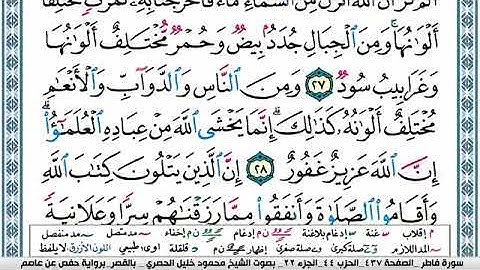 أَلَمْ تَرَ أَنَّ ٱللَّهَ أَنزَلَ مِنَ ٱلسَّمَآءِ مَآءً فَأَخْرَجْنَا بِهِۦ ثَمَرَٰتٍ مُّخْتَلِفًا
أَلْوَٰنُهَا ۚ وَمِنَ ٱلْجِبَالِ جُدَدٌۢ بِيضٌ وَحُمْرٌ مُّخْتَلِفٌ أَلْوَٰنُهَا
وَغَرَابِيبُ سُودٌ ٢٧ وَمِنَ ٱلنَّاسِ وَٱلدَّوَآبِّ وَٱلْأَنْعَٰمِ
مُخْتَلِفٌ أَلْوَٰنُهُۥ كَذَٰلِكَ ۗ إِنَّمَا يَخْشَى ٱللَّهَ مِنْ عِبَادِهِ ٱلْعُلَمَٰٓؤُا۟ ۗ
إِنَّ ٱللَّهَ عَزِيزٌ غَفُورٌ ٢٨ إِنَّ ٱلَّذِينَ يَتْلُونَ كِتَٰبَ ٱللَّهِ
وَأَقَامُوا۟ ٱلصَّلَوٰةَ وَأَنفَقُوا۟ مِمَّا رَزَقْنَٰهُمْ سِرًّا وَعَلَانِيَةً
م اقلاب غنة م ن إدغام بلاغنة م ن إدغام م ن إخفاء مد متصل مد منفصل
المد اللازم صلة كبرى صلة صغرى إظهار م ن قلقلة طبيعي اوى اللون الأزرق لا يلفظ
سورة فاطر _الصفحة ٤٣٧ _الحزب ٤٤ _الجزء ٢٢ _ بصوت الشيخ محمود خليل الحصري _ بالقصر_برواية حفص عن عاصم